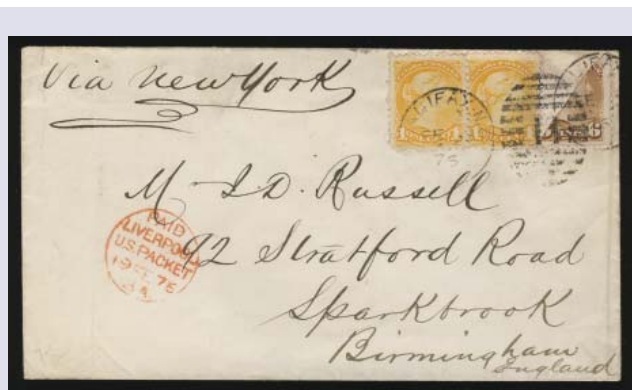 Via New York
M J.D. Russell
92 Stratford Road
Sparkbrook
Birmingham
England
PAID
LIVERPOOL
U.S. PACKET
75
1 1
6